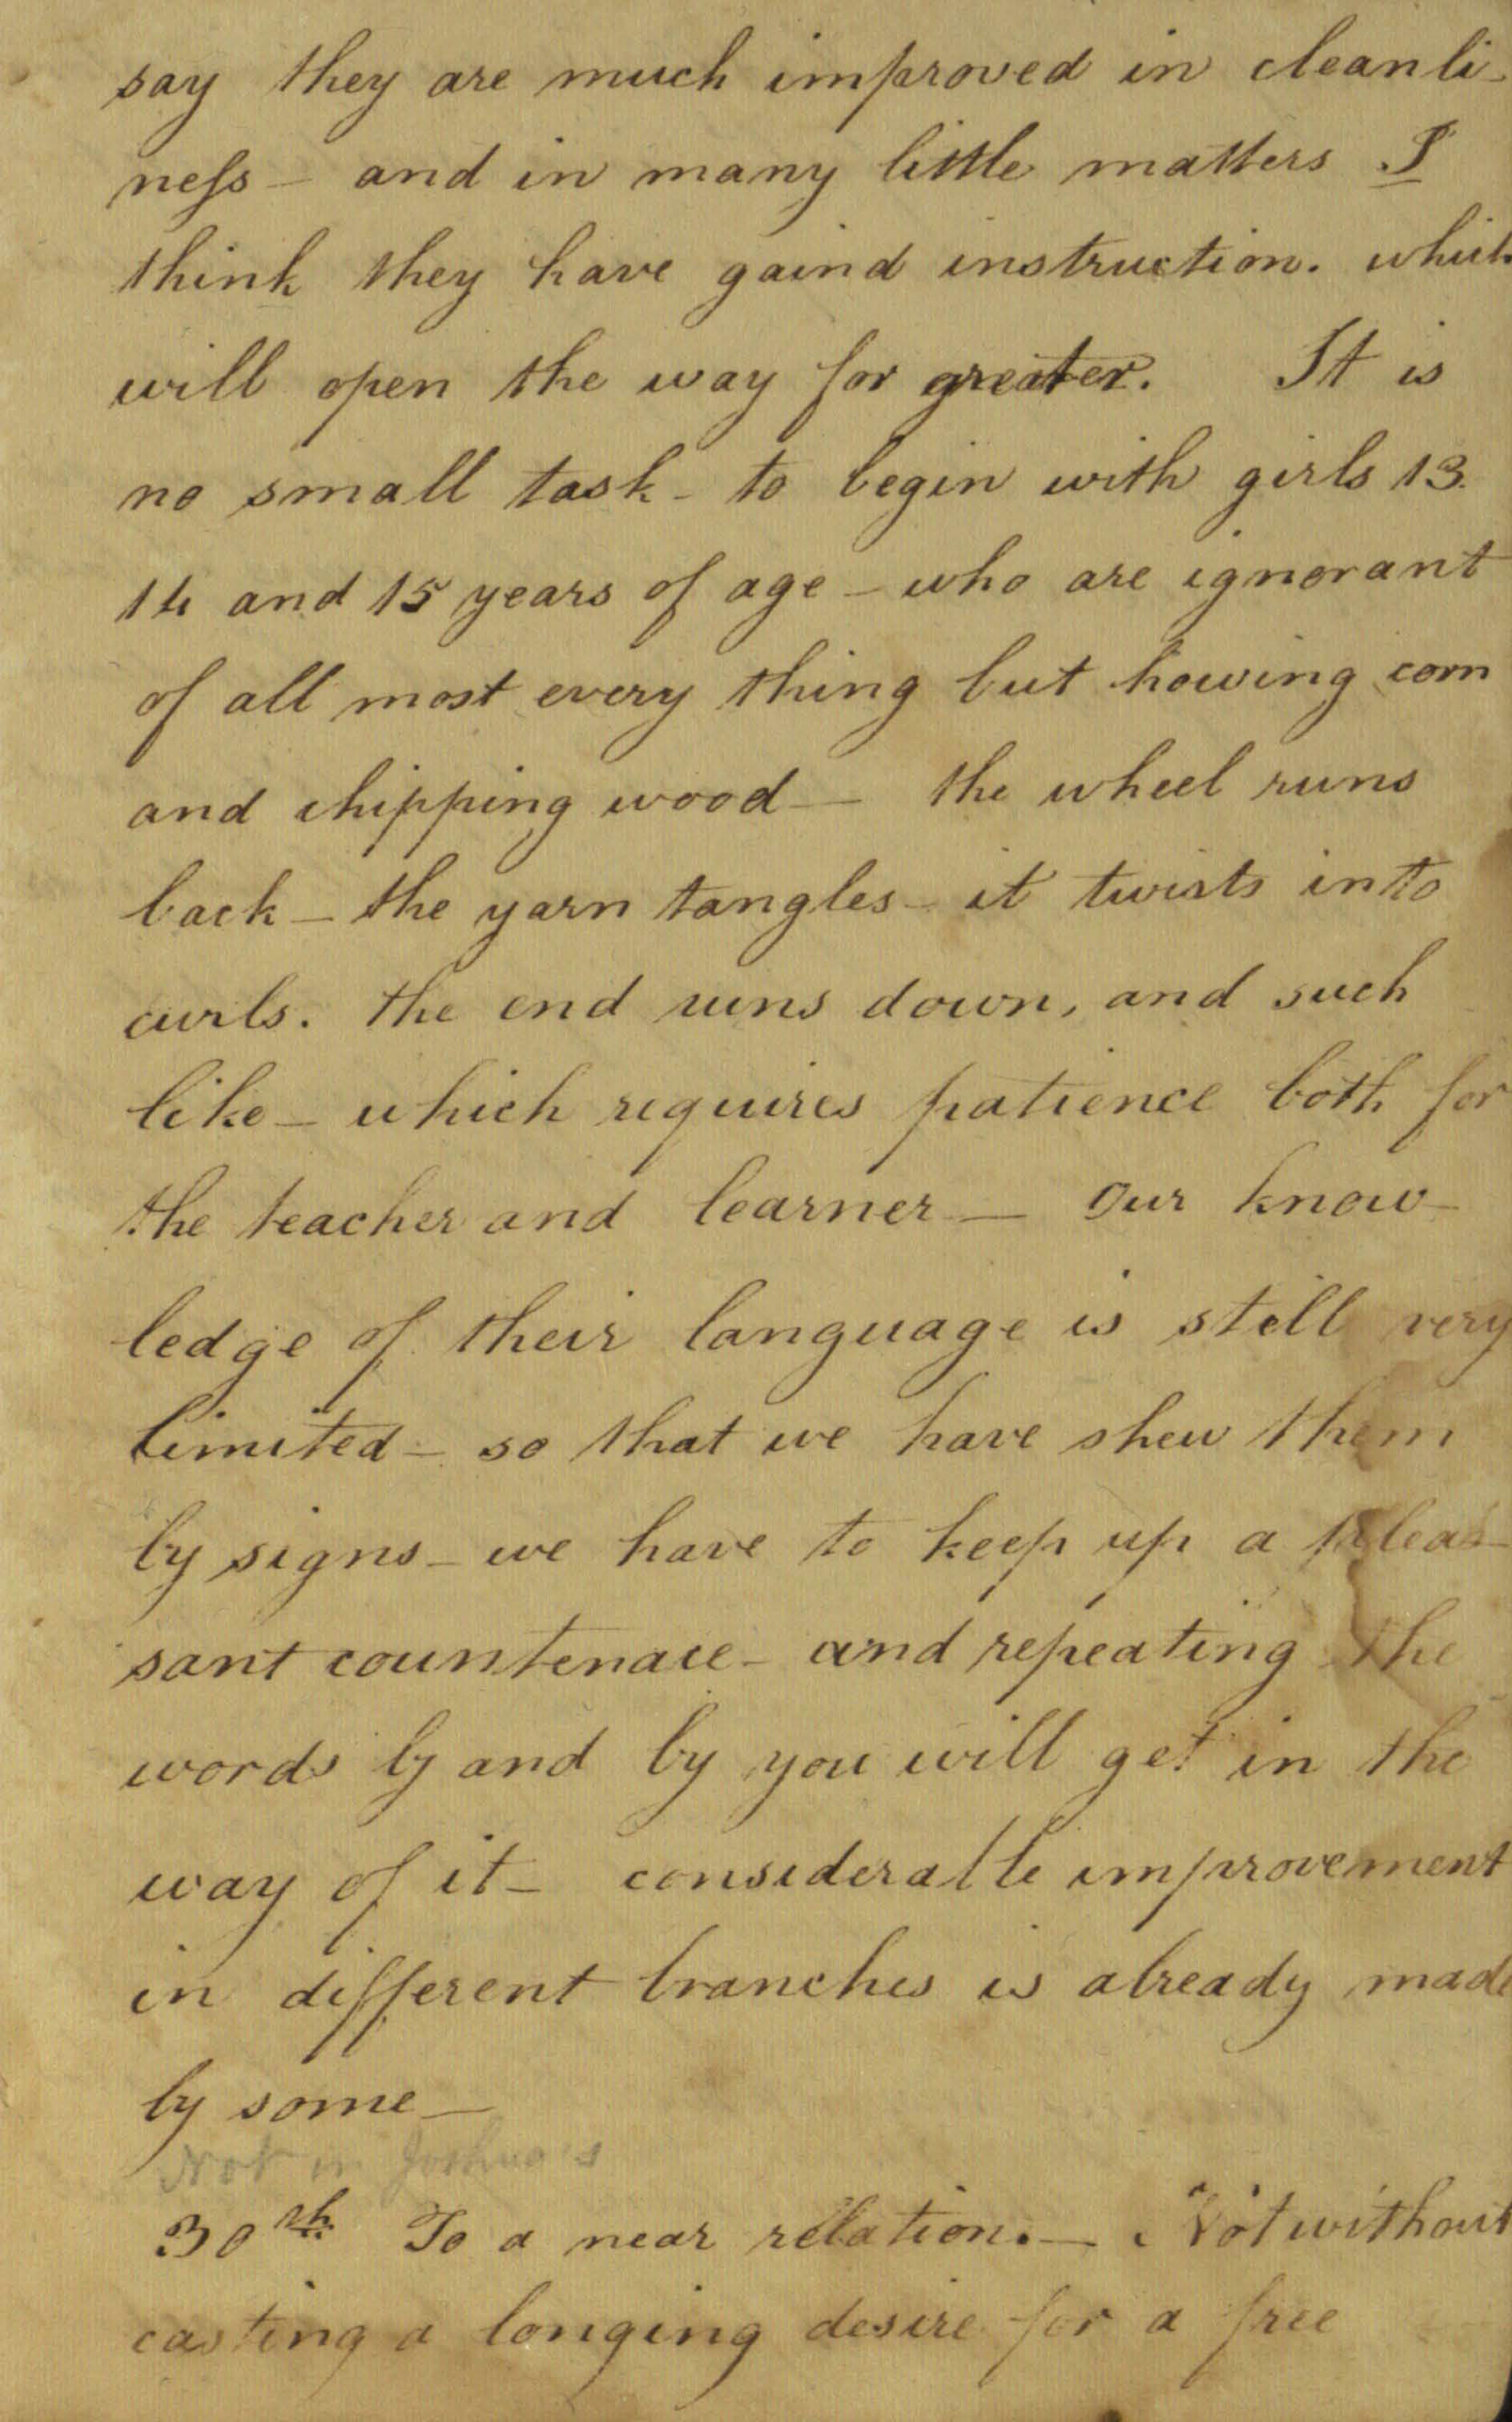 say they are much improved in cleanli-
ness - and in many little matters I
think they have gaind instruction. which
will open the way for greater. It is
no small task - to begin with girls 13.
14 and 15 years of age - who are ignorant
of all most every thing but howing corn
and chipping wood - the wheel runs
back - the yarn tangles - it twists into
curls. the end runs down, and such
like - which requires patience both for
the teacher and learner - our know-
ledge of their language is still very
limited - so that we have shew them
by signs - we have to keep up a plea-
sant countenace - and repeating the
words by and by you will get in the
way of it - considerable improvement
in different branches is already made
by some -
Not in Joshua's
30th To a near relation. - Not without
casting a longing desire for a free